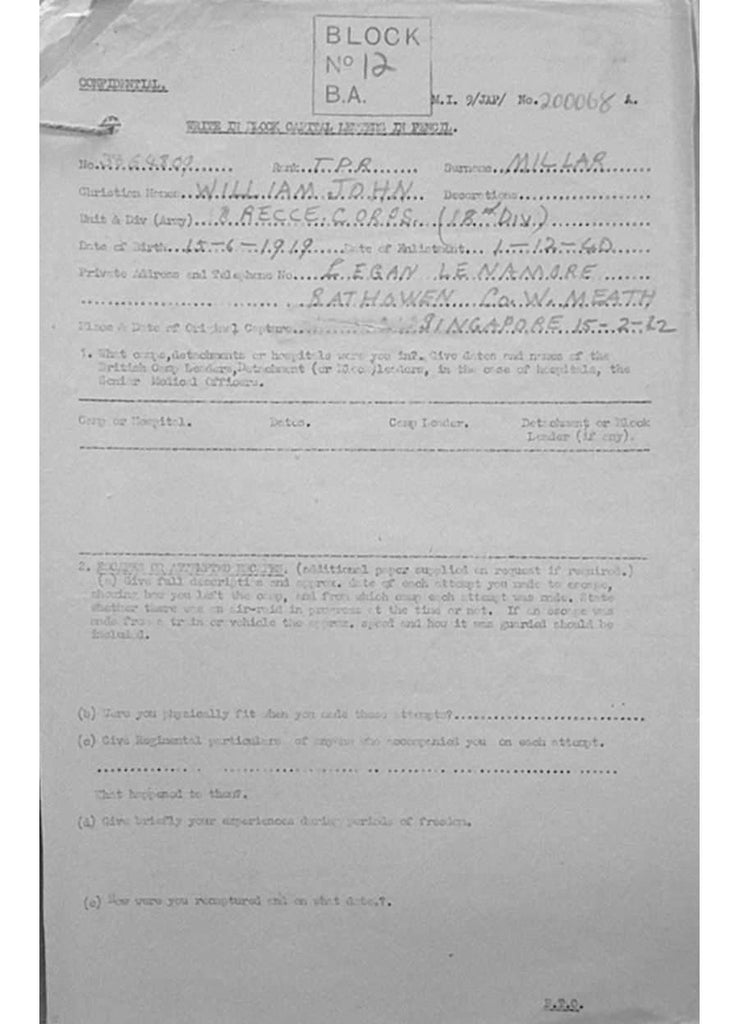 BLOCK
No 12
B.A.
CONFIDENTIAL.
M.I. 9/JAP/ No. 200068 A.
WRITE IN BLOCK CAPITAL LETTERS IN PENCIL.
No. Rank T.P.R Surname MILLAR
Christian Names WILLIAM JOHN Decorations
Unit & Div (Army) 18 RECCE. CORPS. (18th DIV)
Date of Birth 15-6-1919 Date of Enlistment 1-12-40
Private Address and Telephone No. LEGAN LENAMORE
RATHOWEN Co. W. MEATH
Place & Date of Original Capture SINGAPORE 15-2-42
1. What camps, detachments or hospitals were you in?. Give dates and names of the
British Camp Leaders, Detachment (or Block) leaders, in the case of hospitals, the
Senior Medical Officers.
Camp or Hospital. Dates. Camp Leader. Detachment or Block
Leader (if any).
2. ESCAPES OR ATTEMPTED ESCAPES. (additional paper supplied on request if required.)
(a) Give full description and approx. date of each attempt you made to escape,
showing how you left the camp, and from which camp each attempt was made. State
whether there was an air-raid in progress at the time or not. If an escape was
made from a train or vehicle the approx. speed and how it was guarded should be
included.
(b) Were you physically fit when you made these attempts?
(c) Give Regimental particulars of anyone who accompanied you on each attempt.
What happened to them?.
(d) Give briefly your experiences during periods of freedom.
(e) How were you recaptured and on what date.?.
P.T.O.